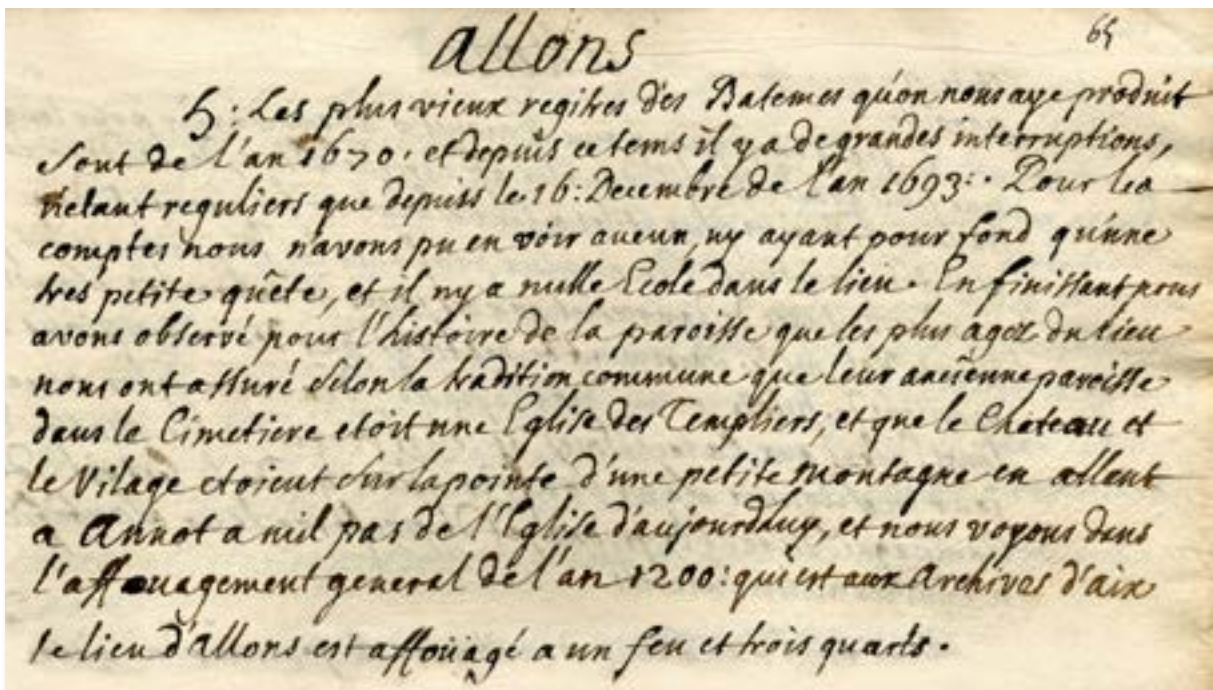 allons
65
5: Les plus vieux regitres des Batemes qu'on nous aye produit
sont de l'an 1670. et depuis ce tems il y a de grandes interruptions,
n'etant reguliers que depuis le 16: Decembre de l'an 1693:. Pour les
comptes nous n'avons pu en voir aucun, ny ayant pour fond qu'une
tres petite quête, et il ny a nulle Ecole dans le lieu. En finissant nous
avons observé pour l'histoire de la paroisse que les plus agez du lieu
nous ont assuré selon la tradition commune que leur anciênne paroisse
dans le Cimetiere etoit une Eglise des Templiers, et que le Chateau et
le Vilage etoient sur la pointe d'une petite montagne en allant
a Annot a mil pas de l'Eglise d'aujourdhuy, et nous voyons dans
l'affouagement general de l'an 1200: qui est aux Archives d'aix
le lieu d'allons est affoüagé a un feu et trois quarts.